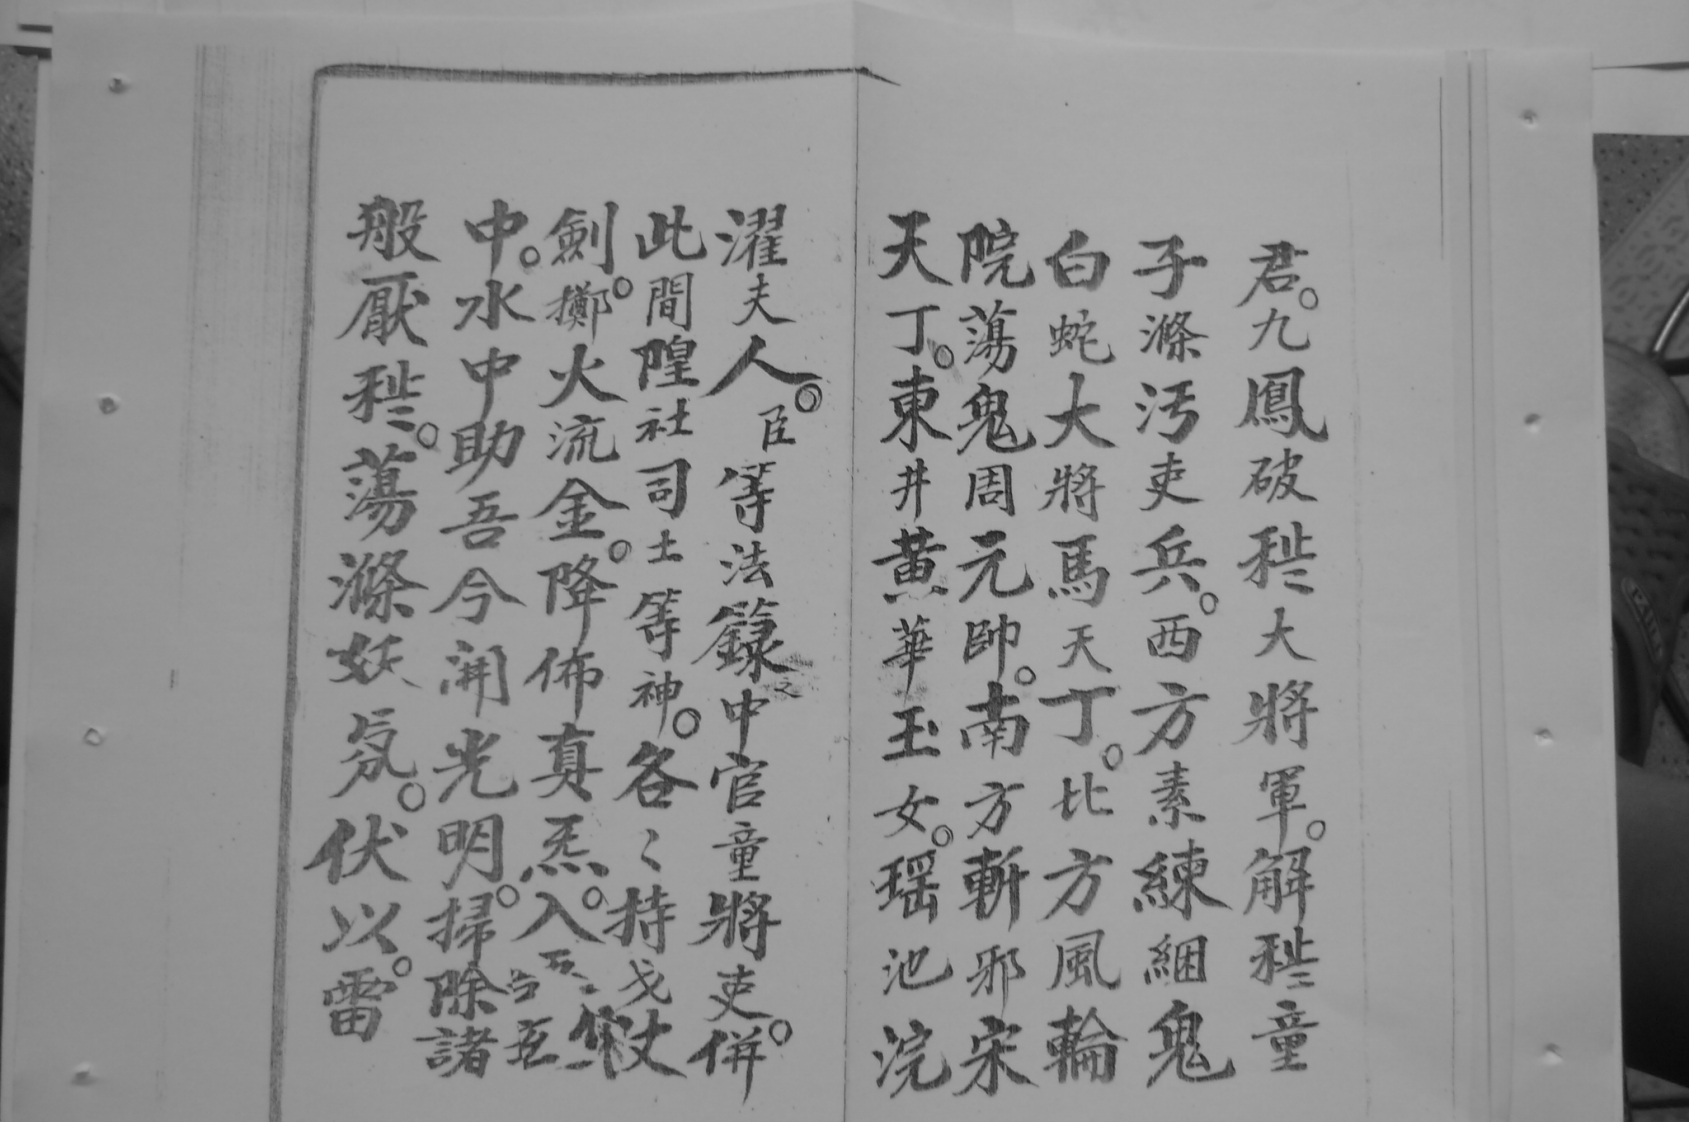 君。九鳳破穢大將軍。解穢童
子滌污吏兵。西方素練綑鬼
白蛇大將馬天丁。比方風輪
院蕩鬼周元帥。南方斬邪宋
天丁。東井黃華玉女。瑶池浣
濯夫人。臣等法籙之中官童將吏。併
此間隍社司土等神。各〻持戈仗
劍。擲火流金。降佈真炁。入
中。水中助吾今開光明。掃除諸
般厭穢。蕩滌妖氛。伏以。雷